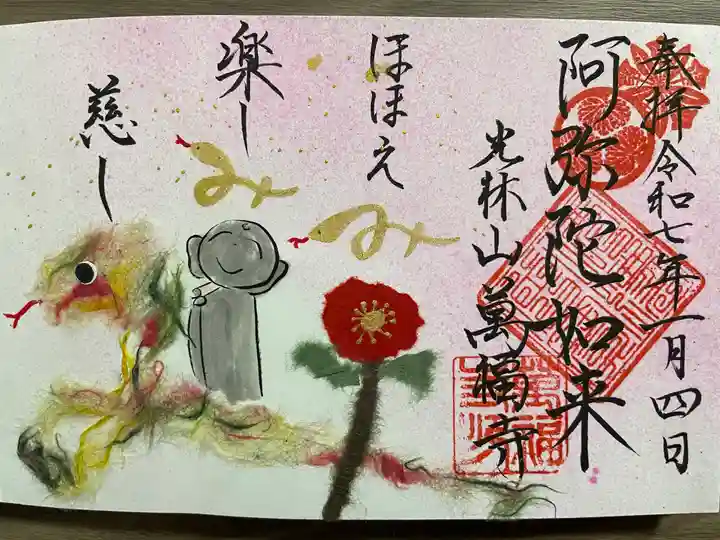 奉拝 令和七年一月四日
阿弥陀如来
光林山 萬福寺
ほほえみ
楽しみ
慈しみ